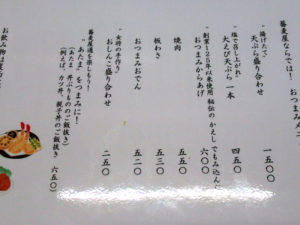 蕎麦屋ならでは!お
"揚げたて"
天ぷら盛り合わせ 一五〇〇
"塩で召し上がれ"
大えび天ぷら 一本 四五〇
"創業125年以来使用 秘伝の かえし でもみ込んだ
おつまみからあげ 六〇〇
焼肉 五五〇
板わさ 五三〇
おつまみおでん 五二〇
"女将の手作り"
おしんこ盛り合わせ 二五〇
蕎麦屋通を楽しもう!
"あたま" をつまみに!
(あたま 丼ぶりもののご飯抜き)
(例えば、カツ丼、親子丼のご飯抜き 六五〇
お飲み物は